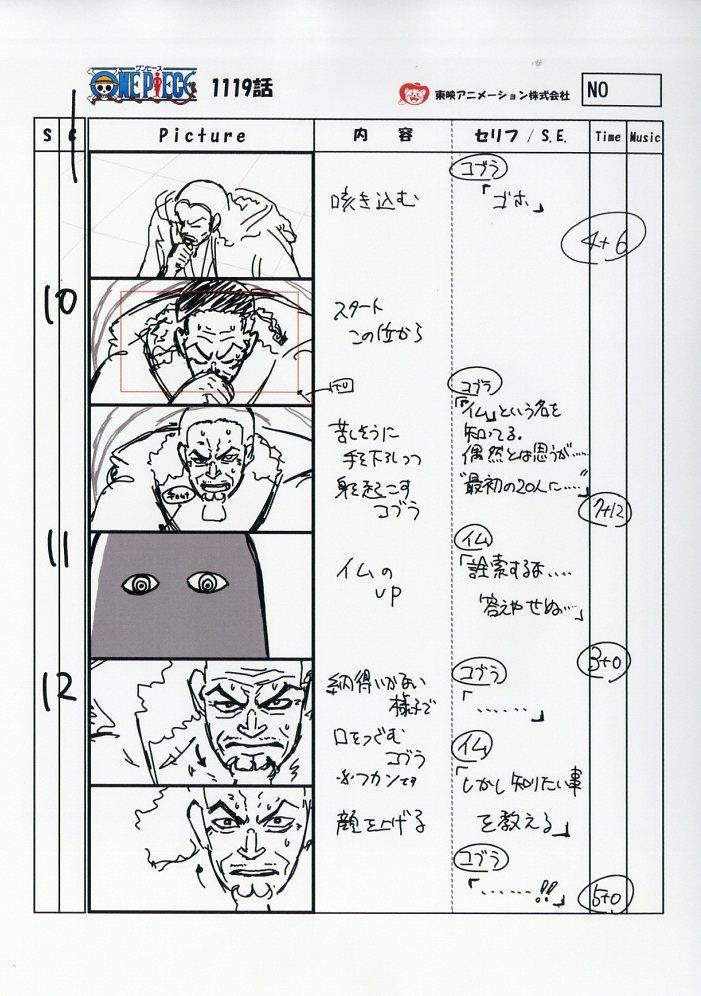 ワンピース
ONE PIECE
1119話
東映アニメーション株式会社
NO
S
C
Picture
内容
セリフ / S.E.
Time
Music
咳き込む
コブラ
「ゴホ」
4+6
10
スタート
この位から
T.U
コブラ
「“イム”という名を
知ってる。
偶然とは思うが……
“最初の20人に……”
苦しそうに
手を下ろしつつ
身を起こす
コブラ
7+12
11
イムの
up
イム
「詮索するな……
答えやせぬ…」
3+0
12
納得いかない
様子で
口をつぐむ
コブラ
コブラ
「……」
イム
「しかし知りたい事
を教える」
顔を上げる
コブラ
「……!!」
5+0